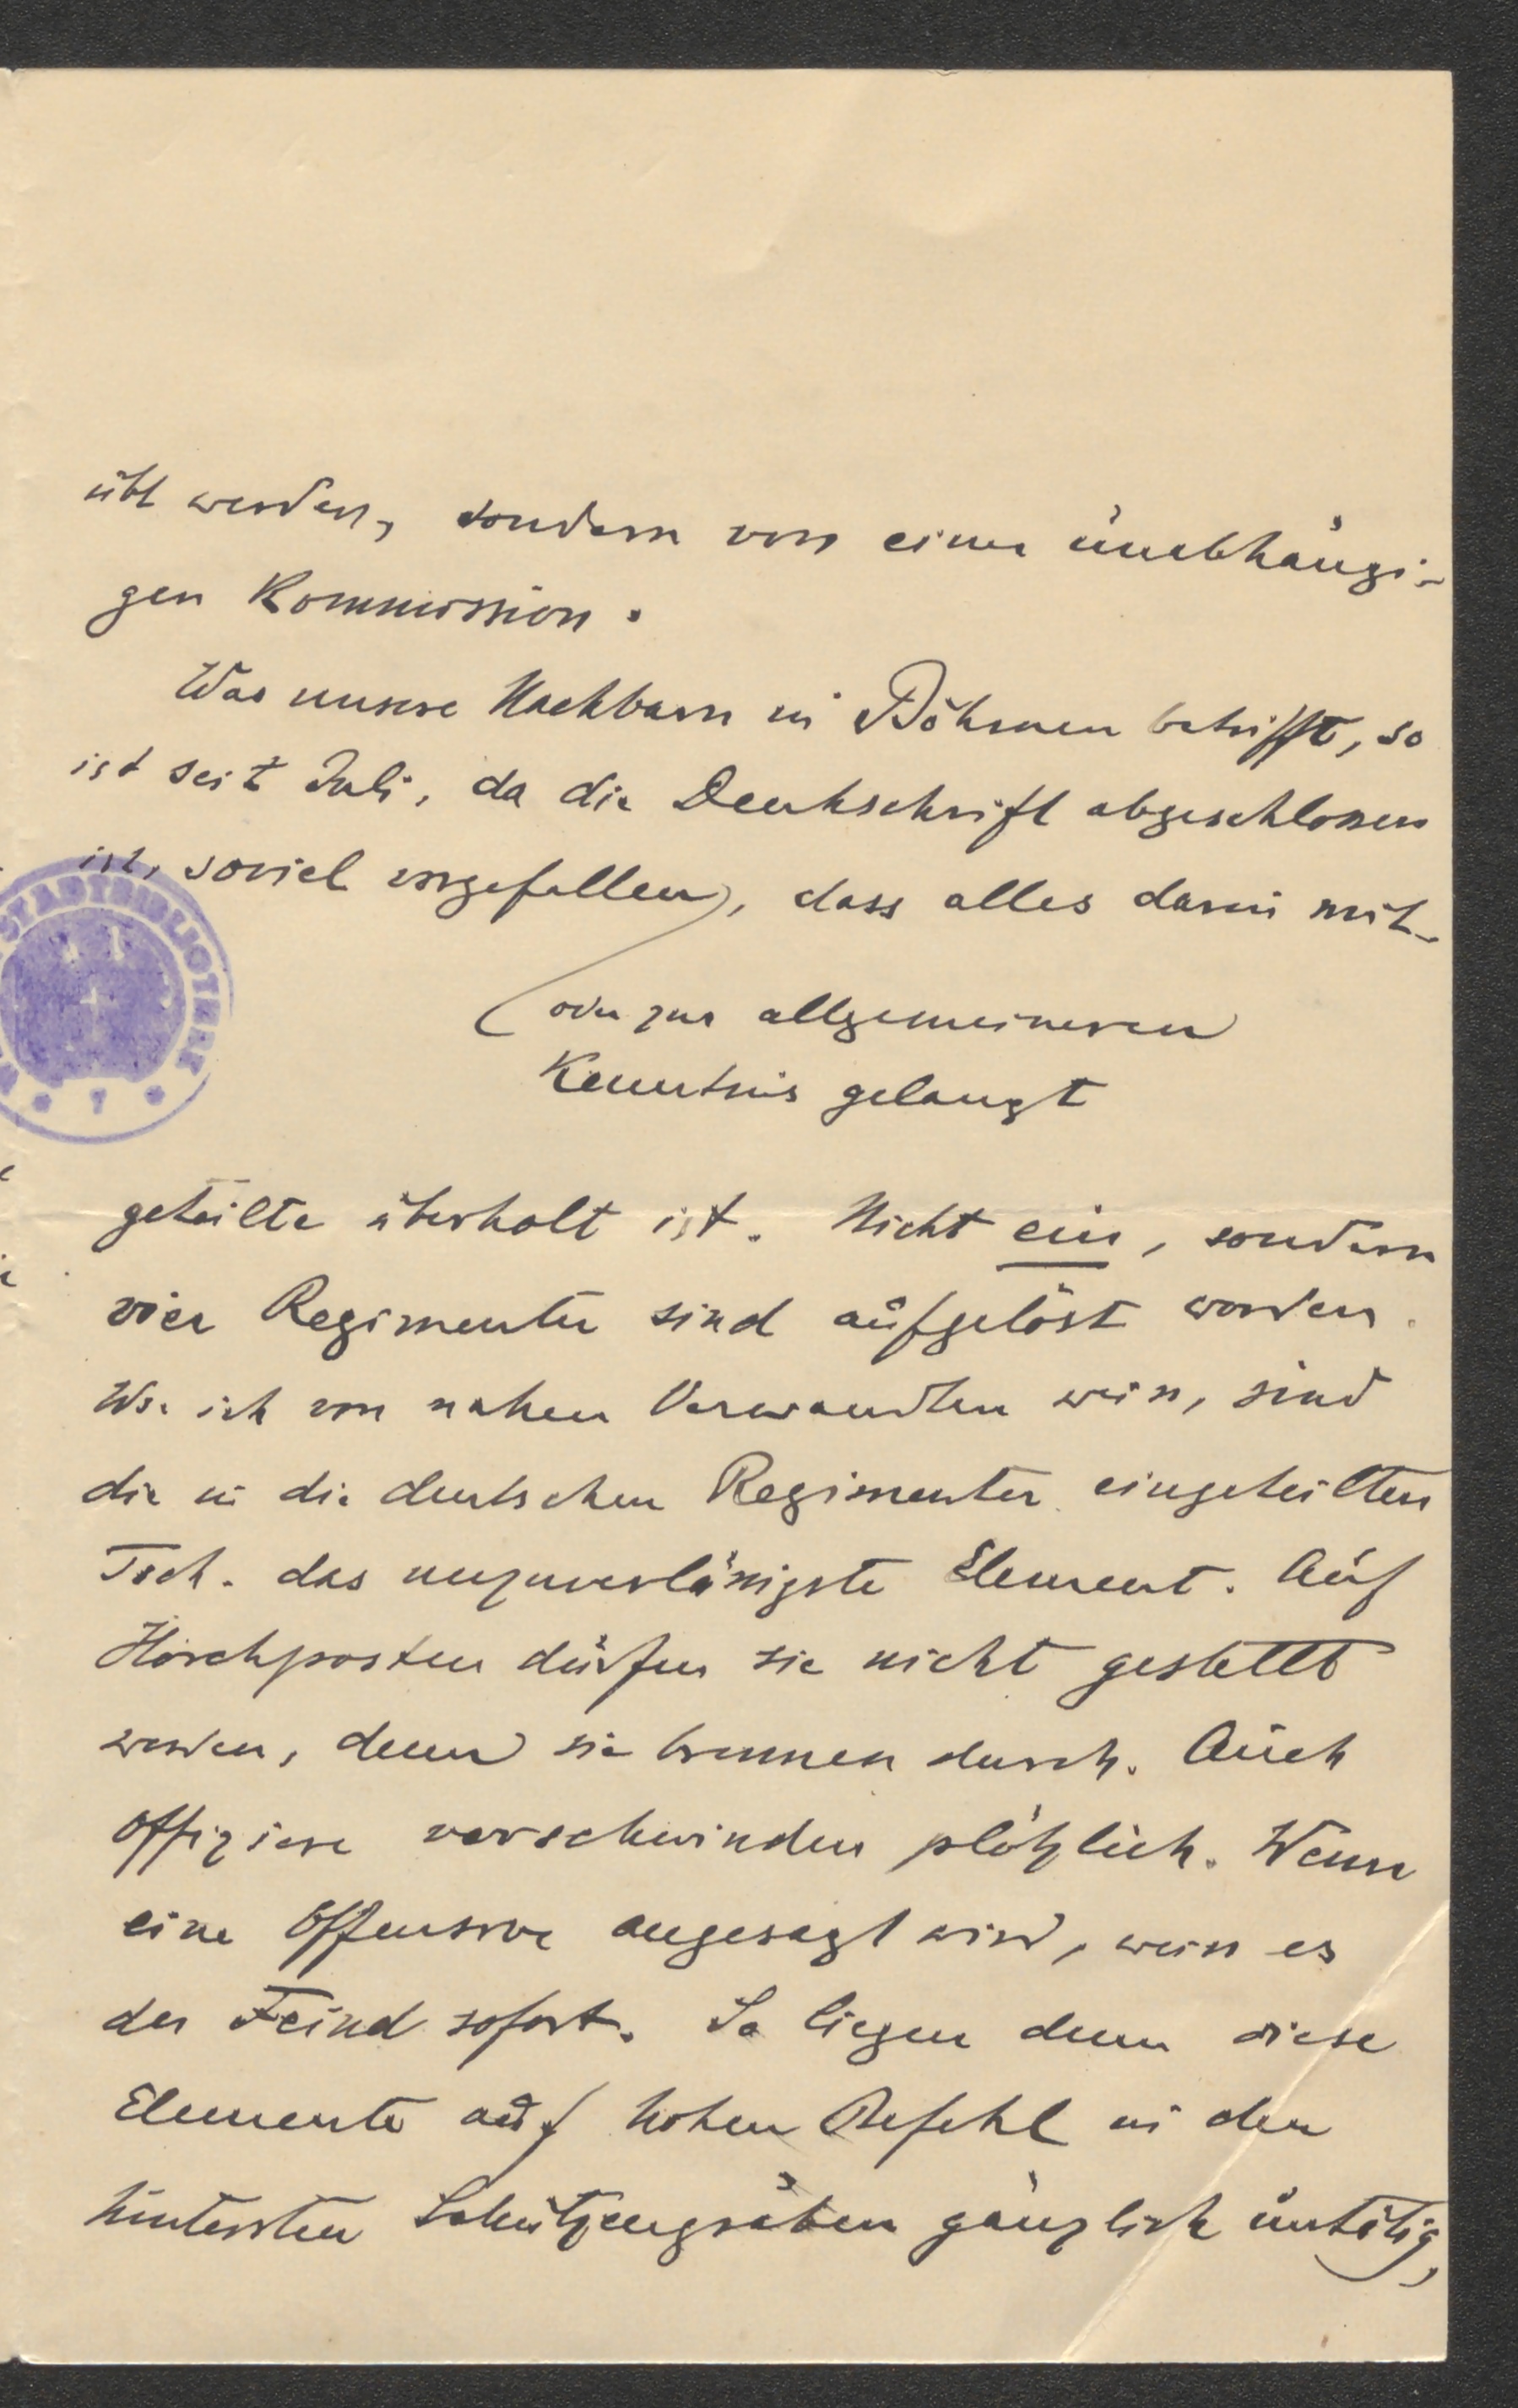 übt werden, sondern von einer unabhängi-
gen Kommission.
Was unsere Nachbarn in Böhmen betrifft, so
ist seit Juli, da die Denkschrift abgeschlossen
ist, soviel vorgefallen, dass alles darin mit-
(oder zur allgemeineren
Kenntnis gelangt
geteilte überholt ist. Nicht ein, sondern
vier Regimenter sind aufgelöst worden.
Wie ich von nahen Verwandten weiss, sind
die in die deutschen Regimenter eingeteilten
Tsch. das unzuverlässigste Element. Auf
Horchposten dürfen sie nicht gestellt
werden, denn sie brennen durch. Auch
Offiziere verschwinden plötzlich. Wenn
eine Offensive angesagt wird, weiss es
der Feind sofort. So liegen denn diese
Elemente auf hohen Befehl in den
hintersten Schützengräben gänzlich untätig,
STADTBIBLIOTHEK